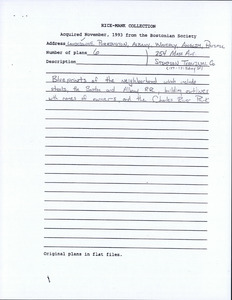 RICE-MANN COLLECTION
Acquired November, 1993 from the Bostonian Society
Address Braintree, Albany, Waverly, Ansley,
Number of plans 6 254
Description Terminal Co
Blueprints of the neighborhood which include
streets, the Boston and Albany RR, building outlines
with names of owners and the Charles River
Original plans in flat files.